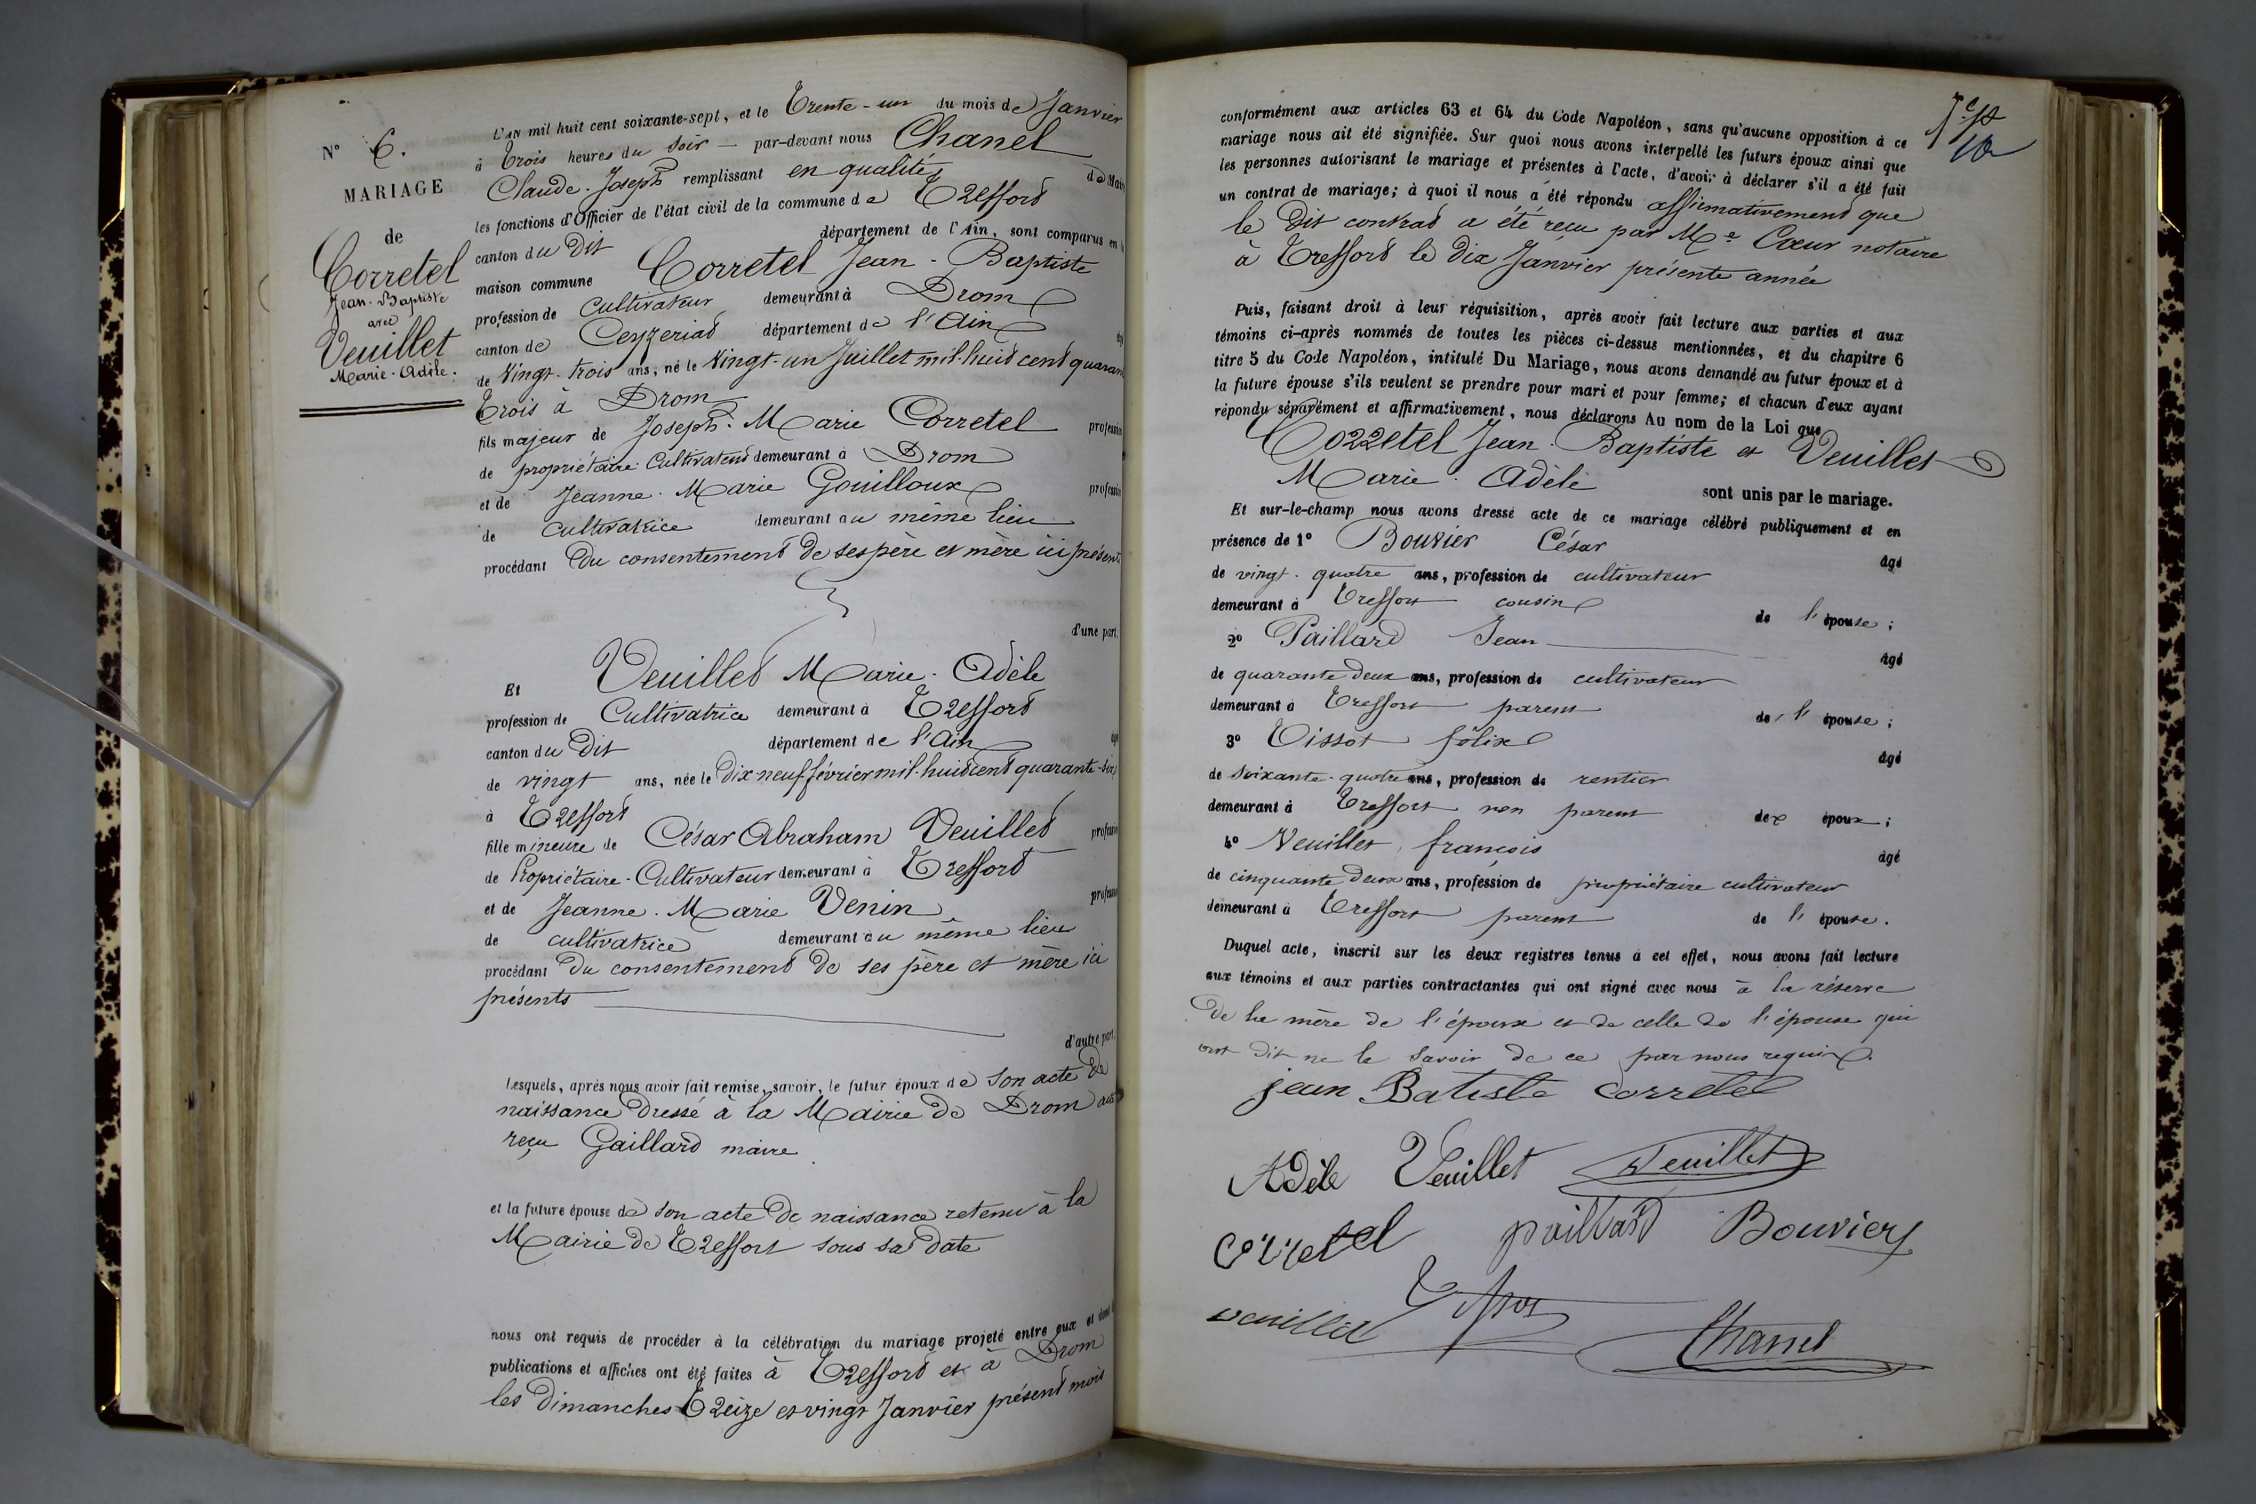 N° 6.
MARIAGE
de
Corretel
Jean-Baptiste
avec
Veuillet
Marie-Adèle.
L'an mil huit cent soixante-sept, et le Trente-un du mois de Janvier
à Trois heures du soir — par-devant nous Chanel
Claude-Joseph remplissant en qualité de Maire
les fonctions d'Officier de l'état civil de la commune de Treffort
canton du dit département de l'Ain, sont comparus en la
maison commune Corretel Jean-Baptiste
profession de cultivateur demeurant à Drom
canton de Ceyzeriat département de l'Ain
de Vingt-trois ans, né le Vingt-un Juillet mil-huit cent quarante
Trois à Drom
fils majeur de Joseph-Marie Corretel profession
de propriétaire Cultivateur demeurant à Drom
et de Jeanne-Marie Gouilloux profession
de cultivatrice demeurant au même lieu
procédant du consentement de ses père et mère ici présents
d'une part.
Et Veuillet Marie-Adèle
profession de Cultivatrice demeurant à Treffort
canton du dit département de l'Ain
de vingt ans, née le Dix-neuf février mil-huit cent quarante-six
à Treffort
fille mineure de César Abraham Veuillet profession
de Propriétaire-Cultivateur demeurant à Treffort
et de Jeanne-Marie Venin profession
de cultivatrice demeurant au même lieu
procédant du consentement de ses père et mère ici
présents
d'autre part.
Lesquels, après nous avoir fait remise, savoir, le futur époux de son acte de
naissance dressé à la Mairie de Drom
reçu Gaillard maire
et la future épouse de son acte de naissance retenu à la
Mairie de Treffort sous sa date
nous ont requis de procéder à la célébration du mariage projeté entre eux et dont les
publications et affiches ont été faites à Treffort et à Drom
les dimanches Treize et vingt Janvier présent mois
conformément aux articles 63 et 64 du Code Napoléon, sans qu'aucune opposition à ce
mariage nous ait été signifiée. Sur quoi nous avons interpellé les futurs époux ainsi que
les personnes autorisant le mariage et présentes à l'acte, d'avoir à déclarer s'il a été fait
un contrat de mariage; à quoi il nous a été répondu affirmativement que
le dit contrat a été reçu par Me Cœur notaire
à Treffort le dix Janvier présente année
Puis, faisant droit à leur réquisition, après avoir fait lecture aux parties et aux
témoins ci-après nommés de toutes les pièces ci-dessus mentionnées, et du chapitre 6
titre 5 du Code Napoléon, intitulé Du Mariage, nous avons demandé au futur époux et à
la future épouse s'ils veulent se prendre pour mari et pour femme; et chacun d'eux ayant
répondu séparément et affirmativement, nous déclarons Au nom de la Loi que
Corretel Jean-Baptiste et Veuillet
Marie-Adèle sont unis par le mariage.
Et sur-le-champ nous avons dressé acte de ce mariage célébré publiquement et en
présence de 1° Bouvier César âgé
de vingt-quatre ans, profession de cultivateur
demeurant à Treffort cousin de l'épouse;
2° Paillard Jean âgé
de quarante deux ans, profession de cultivateur
demeurant à Treffort parent de l'épouse;
3° Tissot félix âgé
de soixante-quatre ans, profession de rentier
demeurant à Treffort non parent des époux;
4° Veuillet françois âgé
de cinquante deux ans, profession de propriétaire cultivateur
demeurant à Treffort parent de l'épouse.
Duquel acte, inscrit sur les deux registres tenus à cet effet, nous avons fait lecture
aux témoins et aux parties contractantes qui ont signé avec nous à la réserve
de la mère de l'époux et de celle de l'épouse qui
ont dit ne le savoir de ce par nous requis.
jean Batiste corretel
Adèle Veuillet Veuillet
corretel paillard Bouvier
veuillet Tissot
Chanel